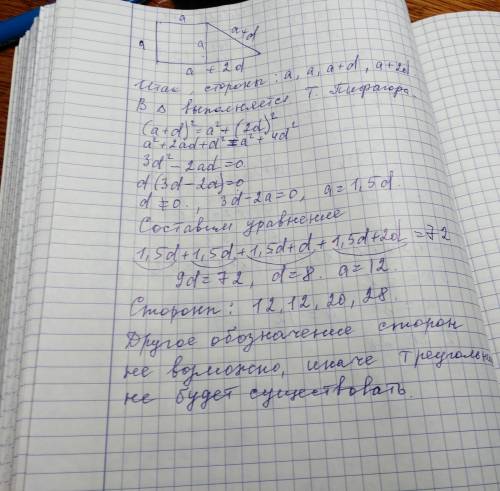 a
a+d
a
a
a + 2d
Итак, стороны: a, a, a+d, a+2d
В Δ выполняется т. Пифагора.
(a+d)²=a²+(2d)²
a²+2ad+d²=a²+4d²
3d²-2ad=0
d(3d-2a)=0
d≠0, 3d-2a=0, a=1,5d.
Составим уравнение
1,5d+1,5d+1,5d+d+1,5d+2d=72
9d=72, d=8. a=12.
Стороны: 12, 12, 20, 28.
Другое обозначение сторон
не возможно, иначе треугольн
не будет существовать.